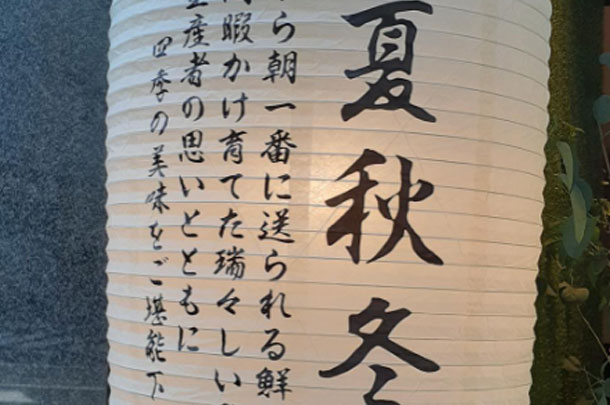 夏秋冬
ら朝一番に送られる鮮
暇かけ育てた瑞々しい
生産者の思いとともに
四季の美味をご堪能下